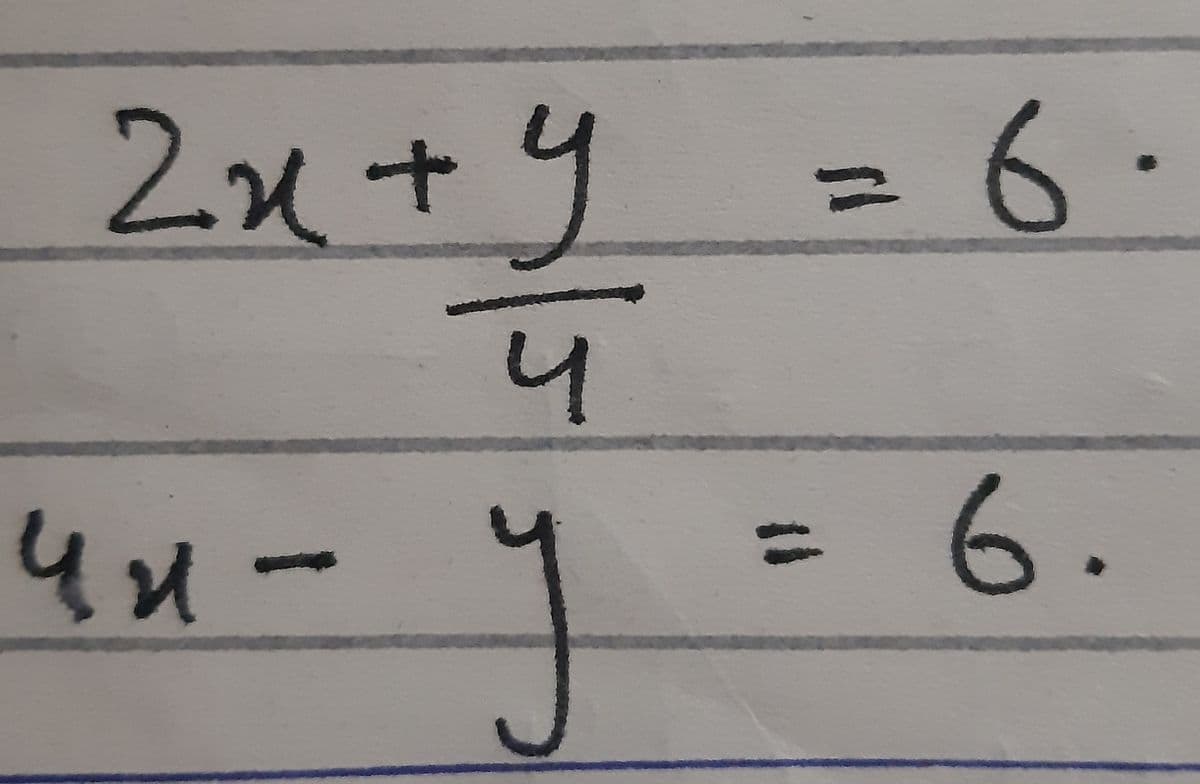 2x + y/4 = 6.
4x - y = 6.